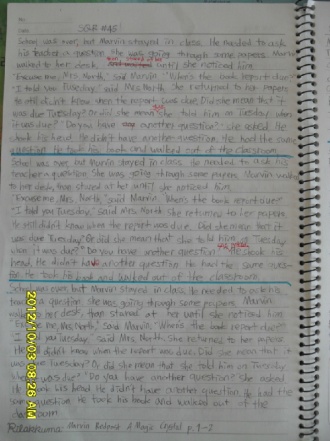 SGR #45
School was over, but Marvin stayed in class. He needed to ask
his teacher a question. She was going through some papers. Marvin
waited to her desk, until she noticed him.
"Excuse me, Mrs. North," said Marvin. "When's the book report due?"
"I told you Tuesday," said Mrs. North. She returned to her papers.
He still didn't know when the report was due. Did she mean that it
was due Tuesday? Or did she mean she told him on Tuesday when
it was due? "Do you have another question?" she asked. He
shook his head. He didn't have another question. He had the same
question. He took his book and walked out of the classroom.
School was over, but Marvin stayed in class. He needed to ask his
teacher a question. She was going though some papers. Marvin
to her desk, stared at her until she noticed him.
"Excuse me, Mrs. North," said Marvin. When's the book report due?
"I told you Tuesday," said Mrs. North. She returned to her papers.
He still didn't know when the report was due. Did she mean that it
was due Tuesday? Or did she mean that she told him on Tuesday
when it was due? "Do you have another question" He shook his
head. He didn't have another question. He had the same
He took his book and walked out of the classroom.
School was over, but Marvin stayed in class. He needed to ask his
teacher a question. She was going through some papers. Marvin
desk, than stared at her until she noticed him.
"Excuse me, Mrs. North," said Marvin. "When's the book report due?"
"I told you Tuesday," said Mrs. North. She returned to her papers.
He didn't know when the report was due. Did she mean that it
was due Tuesday? Or did she mean that she told him on Tuesday
was due?" "Do you have another question?" She asked.
his head. He didn't have another question. He had the
same question. He took his book and walked out of the
classroom.
Marvin Redpost: A Magic Crystal p. 1-2
2012/10/03 08:26 AM